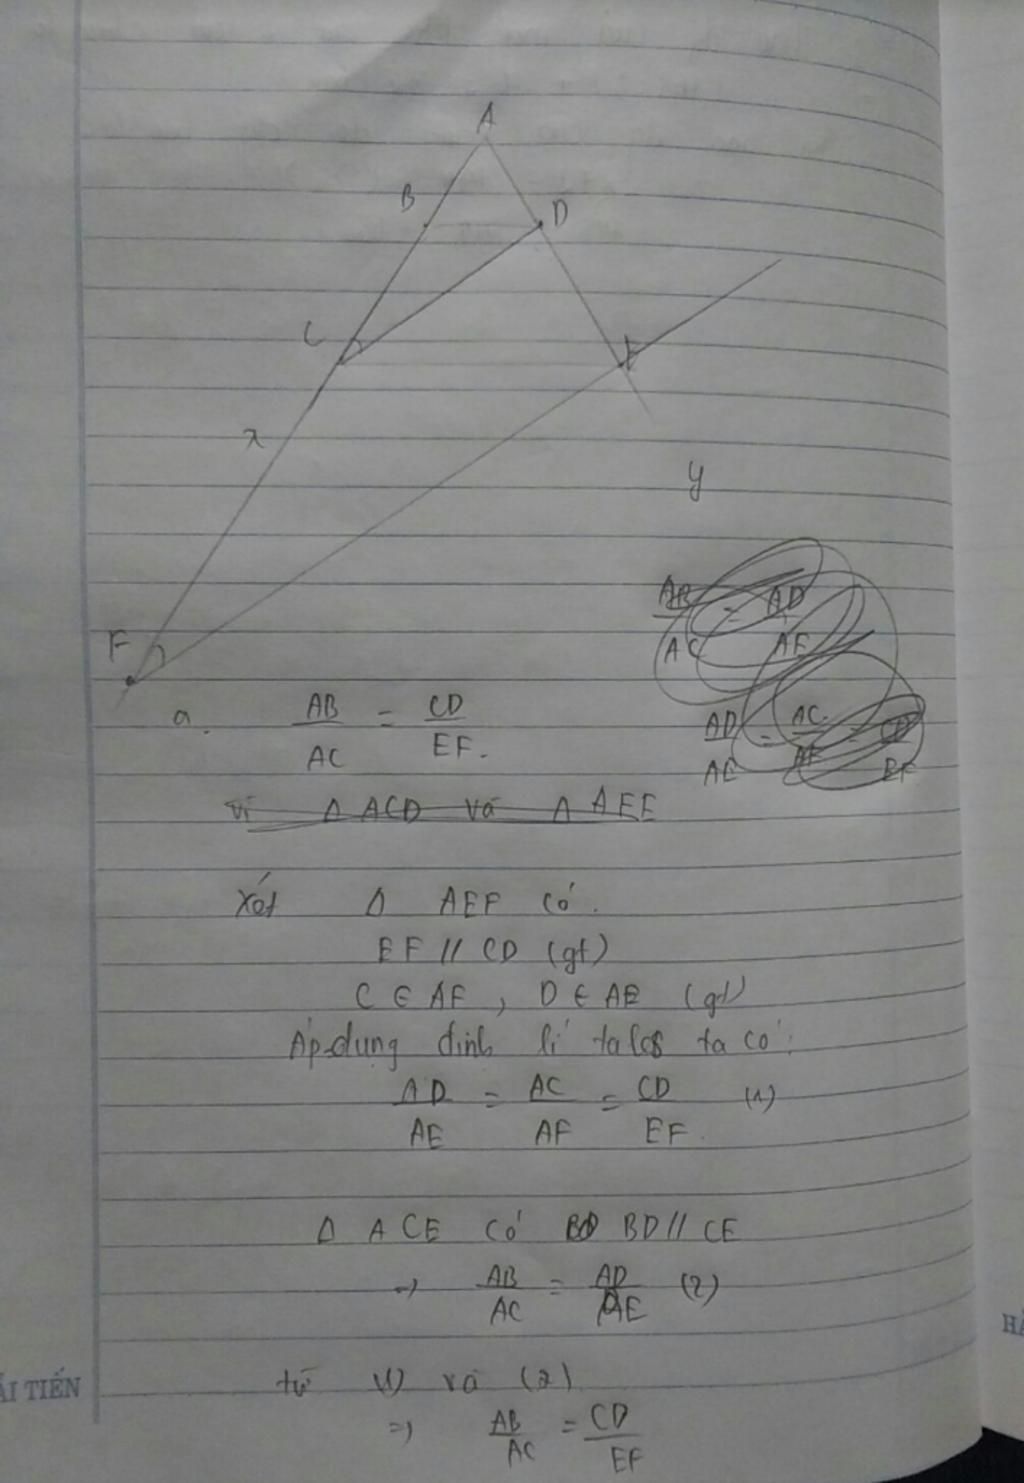 A
B
D
C
E
x
y
F
a. AB/AC = CD/EF.
AB/AC = AD/AE
AD/AE = AC/AF = CD/EF
Vì Δ ACD và Δ AEF
Xét Δ AEF có.
EF // CD (gt)
C ∈ AF, D ∈ AE (gt)
Áp dụng định lí talos ta có:
AD/AE = AC/AF = CD/EF. (1)
Δ ACE có BD // CE
=> AB/AC = AD/AE (2)
từ (1) và (2)
=> AB/AC = CD/EF
ẢI TIẾN
HẢ